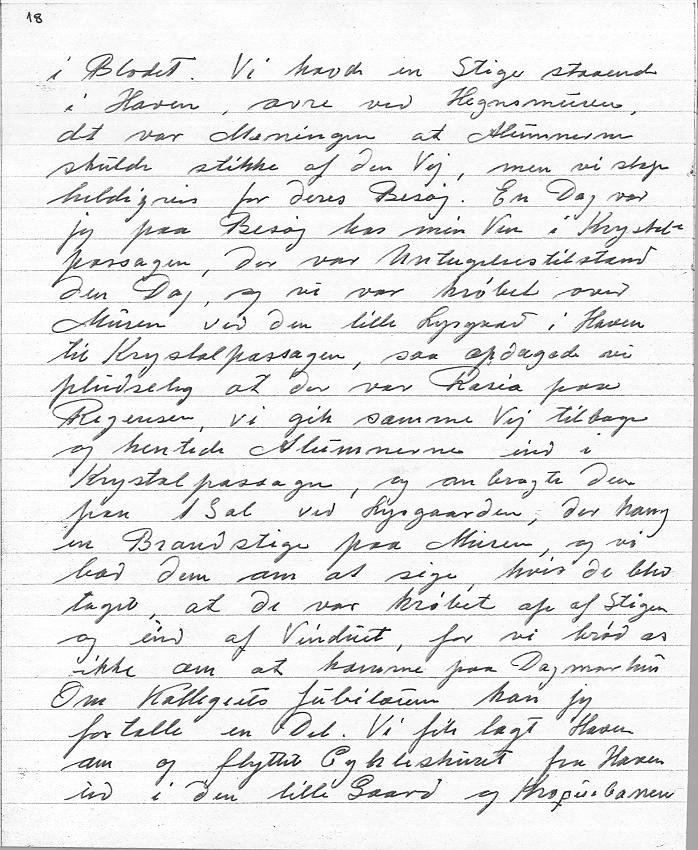 18
i Blodet. Vi havde en Stige staaende
i Haven, ovre ved Hegnsmuren,
det var Meningen at Alumnerne
skulde stikke af den Vej, men vi slap
heldigvis for deres Besøg. En Dag var
jeg paa Besøg hos min Ven i Krystal-
passagen, der var Undtagelsestilstand
den Dag, og vi var krøbet over
Muren ved den lille Lysgaard i Haven
til Krystalpassagen, saa opdagede vi
pludselig at der var Razia paa
Regensen, vi gik samme Vej tilbage
og hentede Alumnerne ind i
Krystalpassagen, og anbragte dem
paa 1 Sal ved Lysgaarden, der hang
en Brandstige paa Muren, og vi
bad dem om at sige, hvis de blev
taget, at de var krøbet op af Stigen
og ind af Vinduet, for vi brød os
ikke om at komme paa Dagmarhus
Om Kollegiets Jubilæum kan jeg
fortælle en Del. Vi fik lagt Haven
om og flyttet Cykleskuret fra Haven
ind i den lille Gaard og